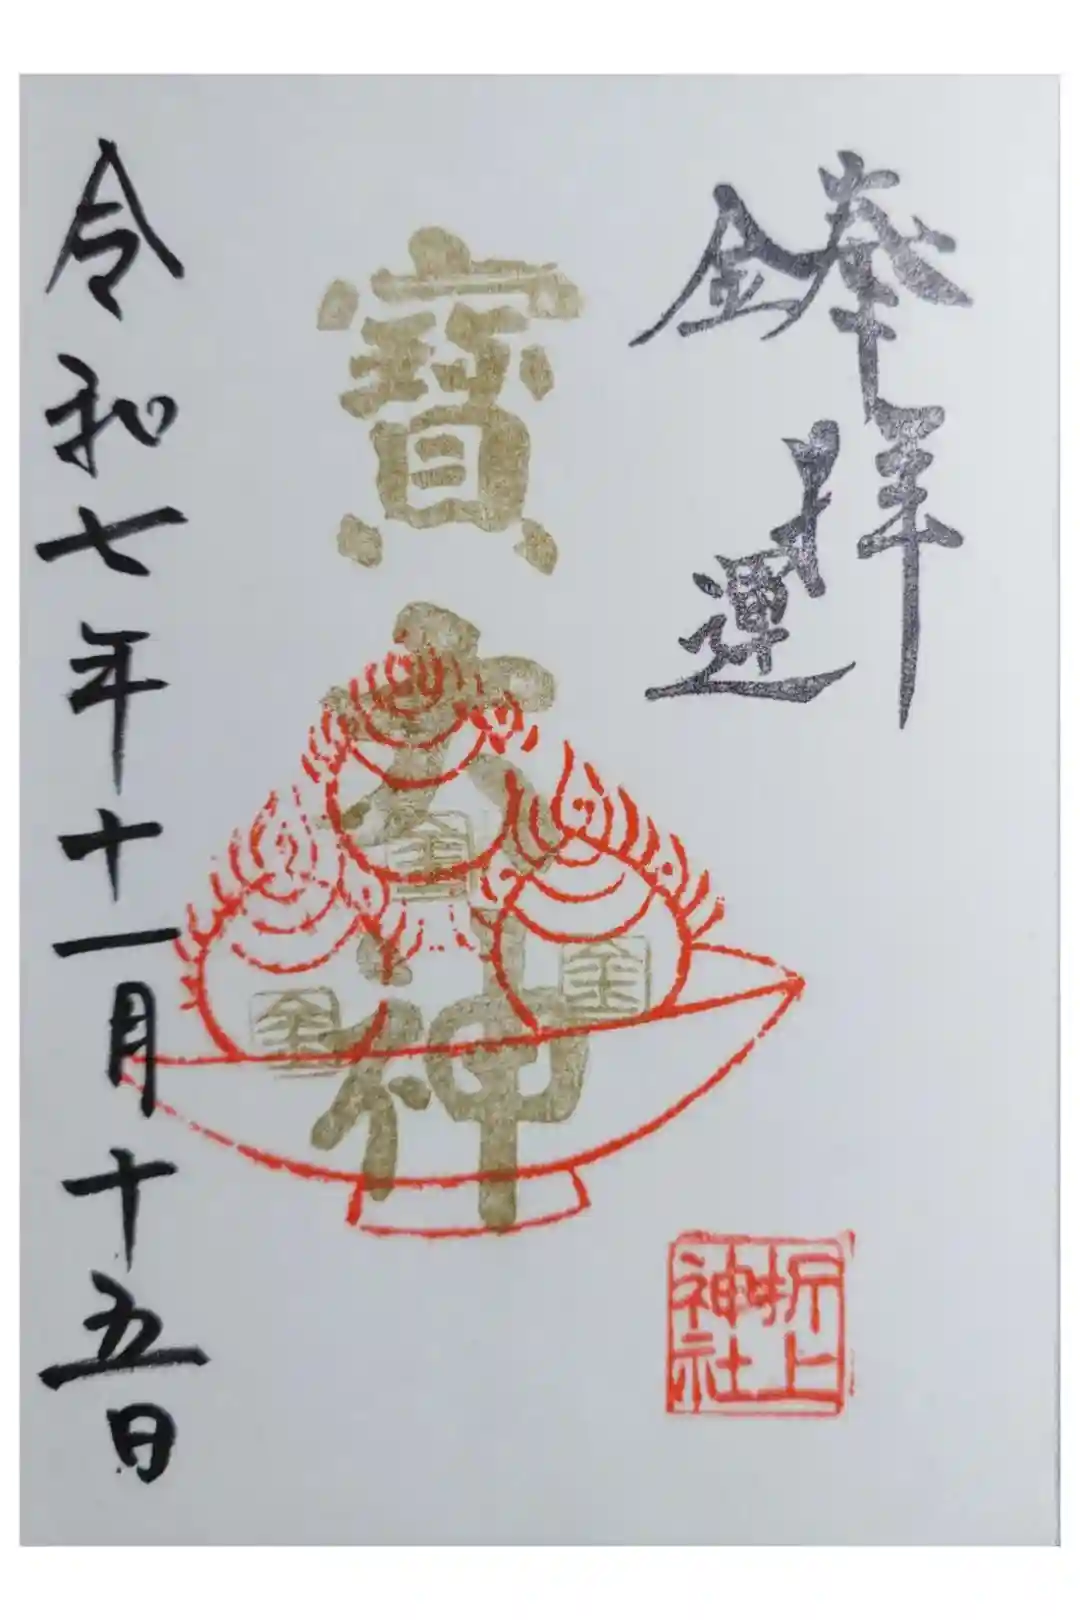 奉拝
金運
寳大神
金
金
金
折上
神社
令和七年十一月十五日